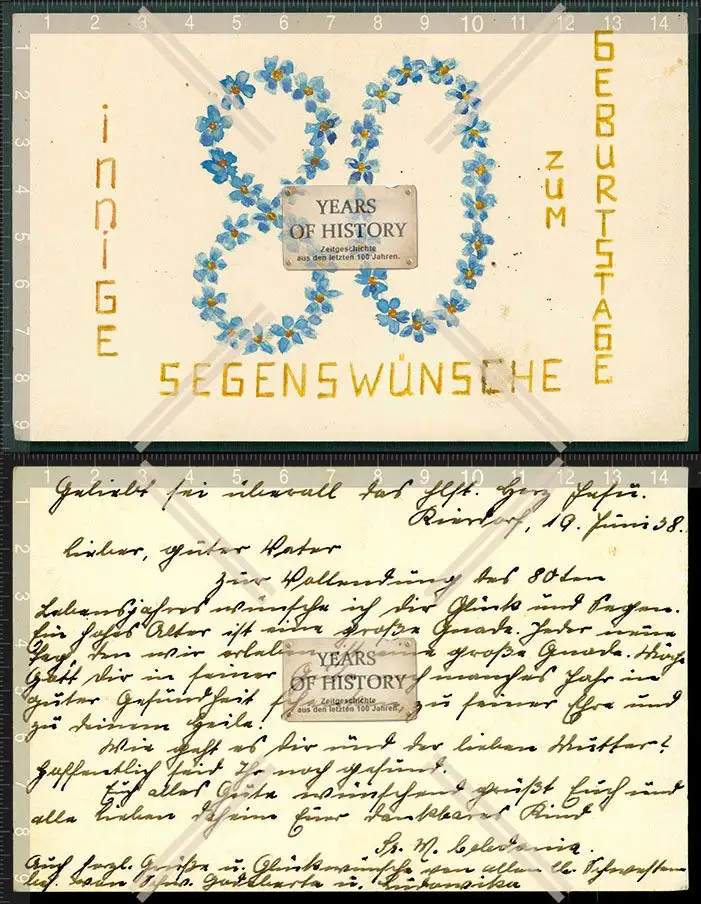 innige
80
zum
Geburtstage
Segenswünsche
YEARS
OF HISTORY
Zeitgeschichte
aus den letzten 100 Jahren.
Geliebt sei überall das hlst. Herz Jesu.
Rierdorf, 19. Juni 38.
Lieber, guter Vater
Zur Vollendung des 80ten
Lebensjahres wünsche ich dir Glück und Segen.
Ein hohes Alter ist eine große Gnade. Jeder neue
Tag, den wir erleben ist eine große Gnade. Möge
Gott dir in seiner manches Jahr in
guter Gesundheit zu seiner Ehre und
zu deinem Heile!
Wie geht es dir und der lieben Mutter?
Hoffentlich seid Ihr noch gesund.
Euch alles Gute wünschend grüßt Euch und
alle Lieben daheim Euer dankbares Kind
Sr. M. Celedonia.
Auch herzl. Grüße u. Glückwünsche von allen lb. Schwestern
bes. von Schw. Godeberta u. Ludowika
YEARS
OF HISTORY
Zeitgeschichte
aus den letzten 100 Jahren.